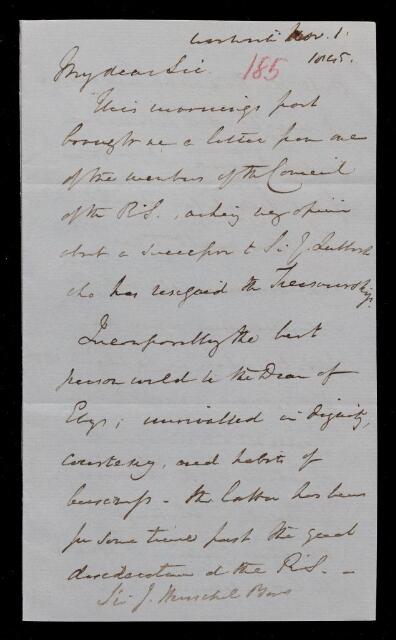 Nov. 1.
1845.
185
My dear Sir
This mornings post
brought me a letter from one
of the members of the Council
of the R.S., asking my opinion
about a successor to Sir J. Lubbock
who has resigned the Treasurership.
Incomparably the best
person would be the Dean of
Ely; unrivalled in dignity,
courtesy, and habits of
business - the latter has been
for some time past the great
desideratum of the R.S. -
Sir J. Herschel Bart